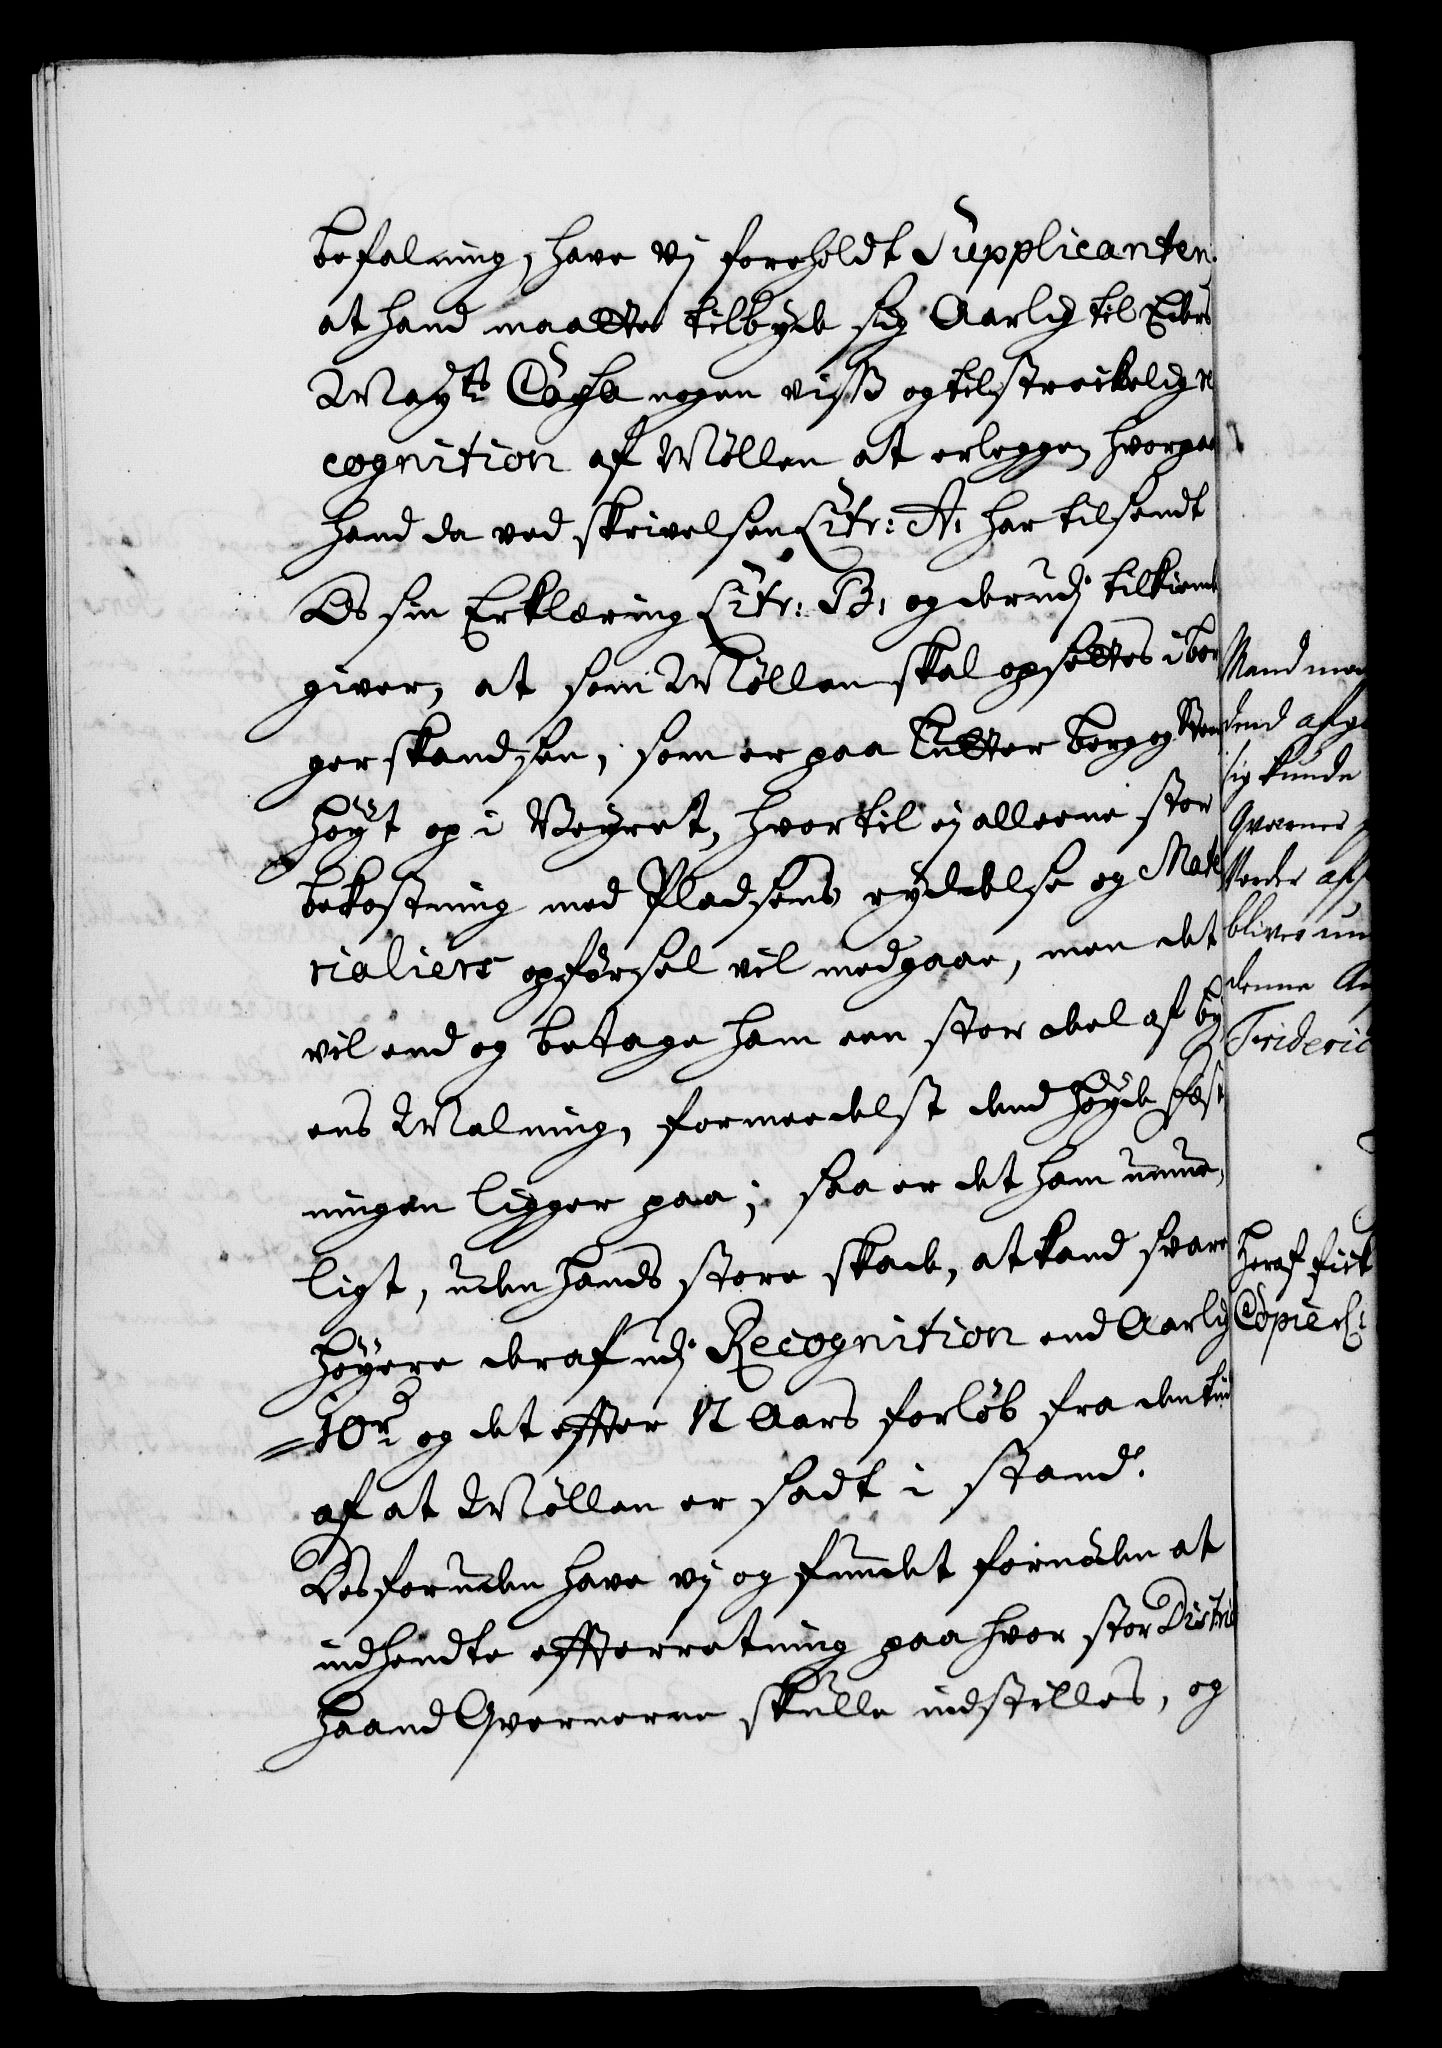 befalning, have vj foreholdt Supplicanten.
at hand maatte tilbyde sig Aarlig til Eders
Mayts Casse nogen viss og tilstreckelig re
cognition af Møllen at erlegge, hvorpaa
hand da ved skrivelsen Litr: A: har tilsendt
Os sin Erklæring Litr: B, og derudj tilkiende
giver, at som Møllen skal opsettes i bor
ger skandsen, som er paa lutter berg og
høyt op i Veyret, hvortil ej alleene stor
bekostning med Pladsens rydelse og Mate
rialiers opførsel vil medgaae, men det
vil end og betage ham een stor deel af by
ens Malning, formeedelst dend høyde Fæst
ningen ligger paa; saa er det ham umue
ligt, uden hands store skade, at kand svare
høyere deraf udj Recognition end Aarlig
10 rd og det effter 12 Aars forløb fra den tid
af at Møllen er sadt i stand.
Desforuden have vj og fundet fornøden at
indhendte effterretning paa hvor stor District
Haand Qvernerne skulle indstilles, og
Mand
dend
sig kunde
Qverner
bliver
denne
Frideric
Heraf fick
Copie